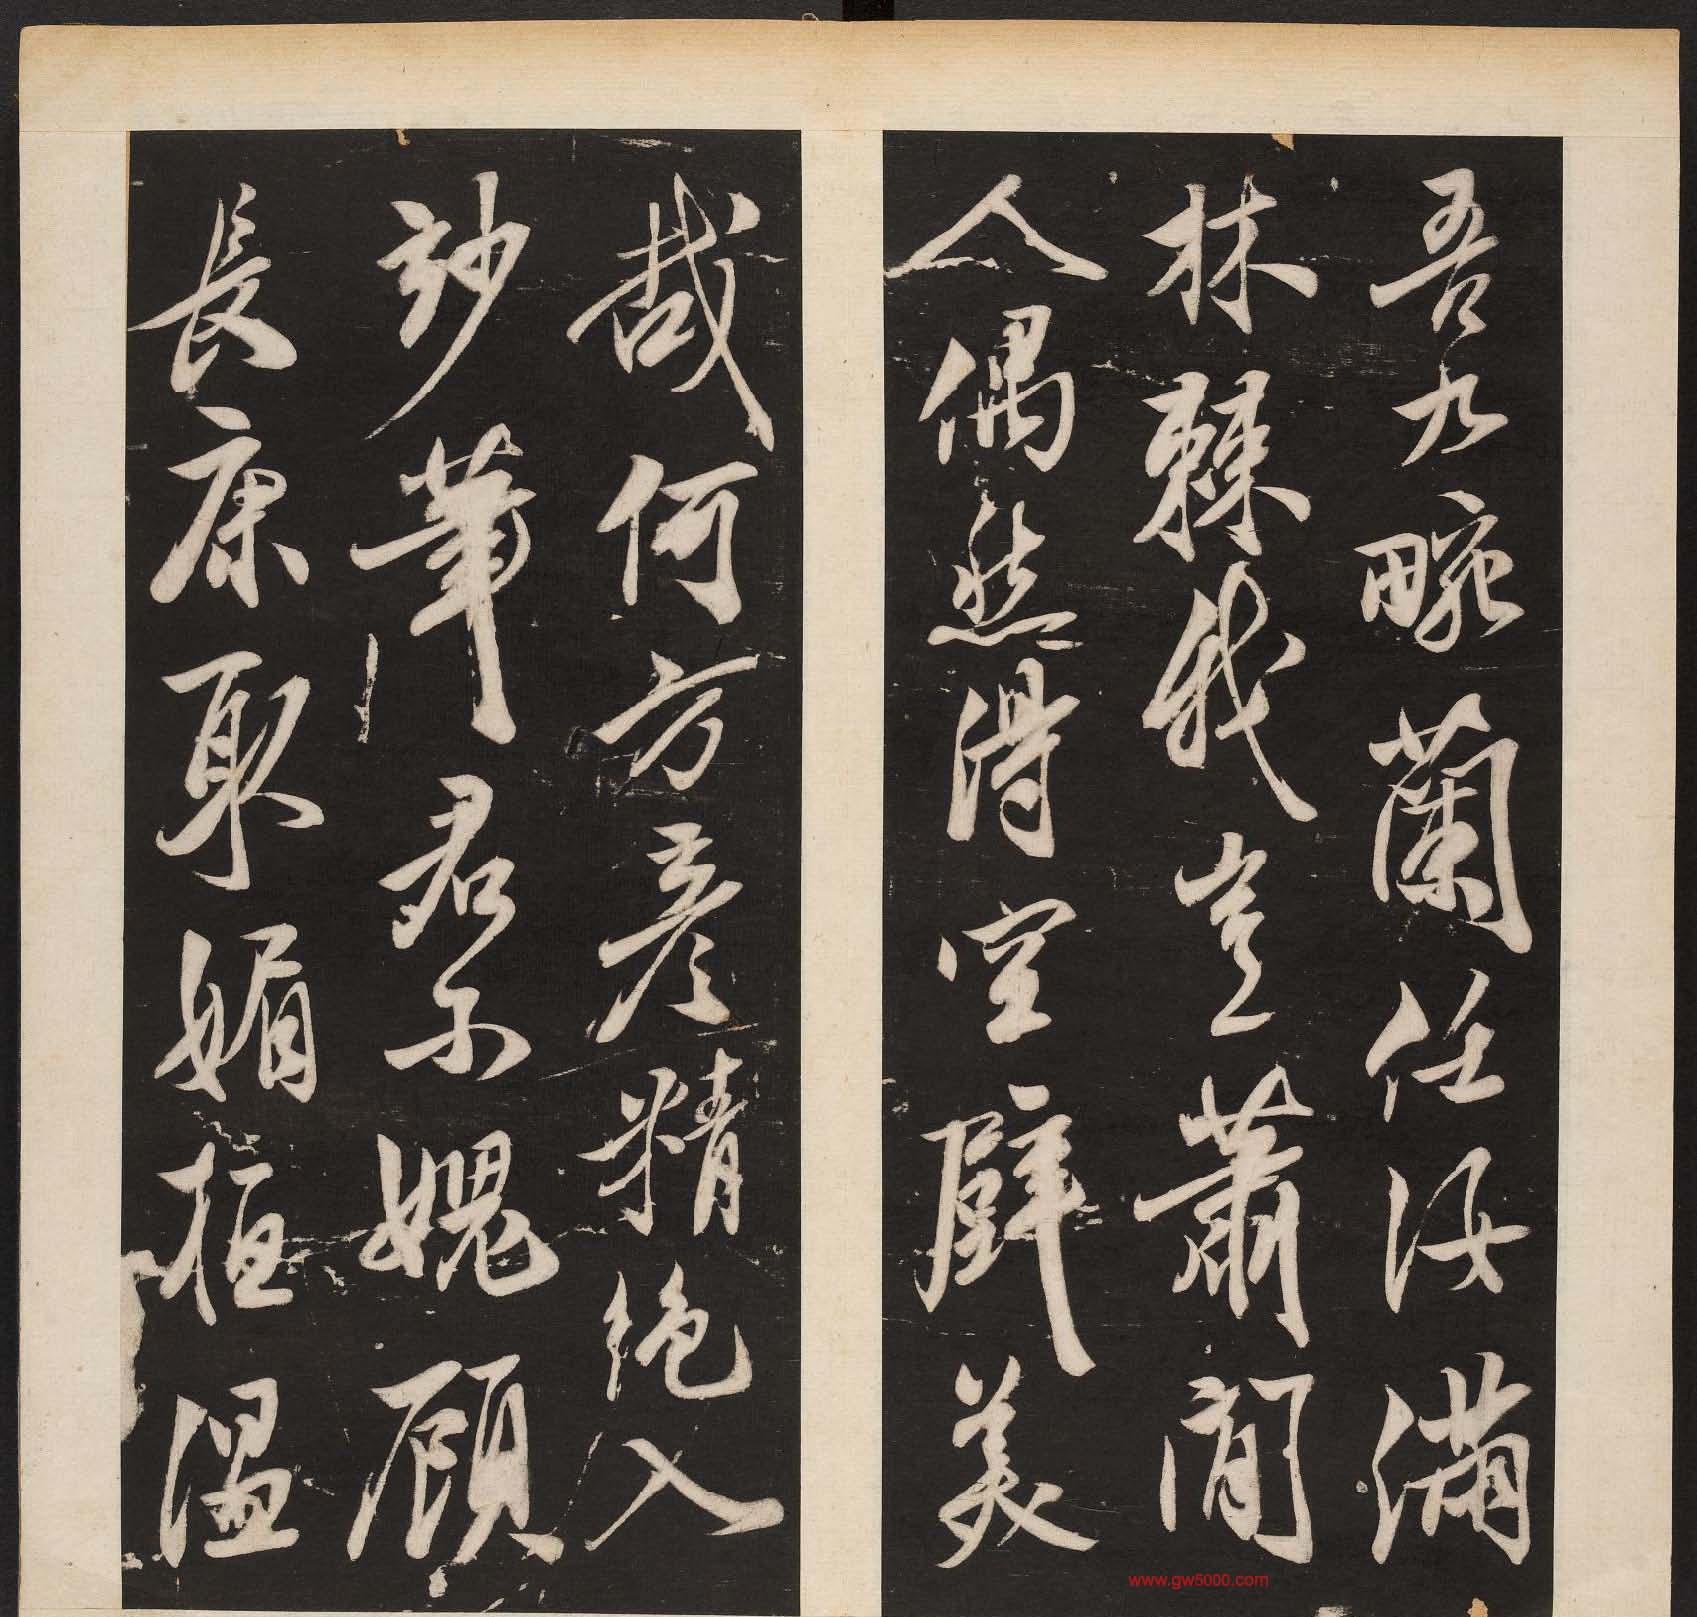 吾九畹蘭任汝滿
林棘我豈蕭閒
人偶然得空壁美
哉何方彥精絕入
妙筆君不媿顧
長康取媚桓溫
www.gw5000.com